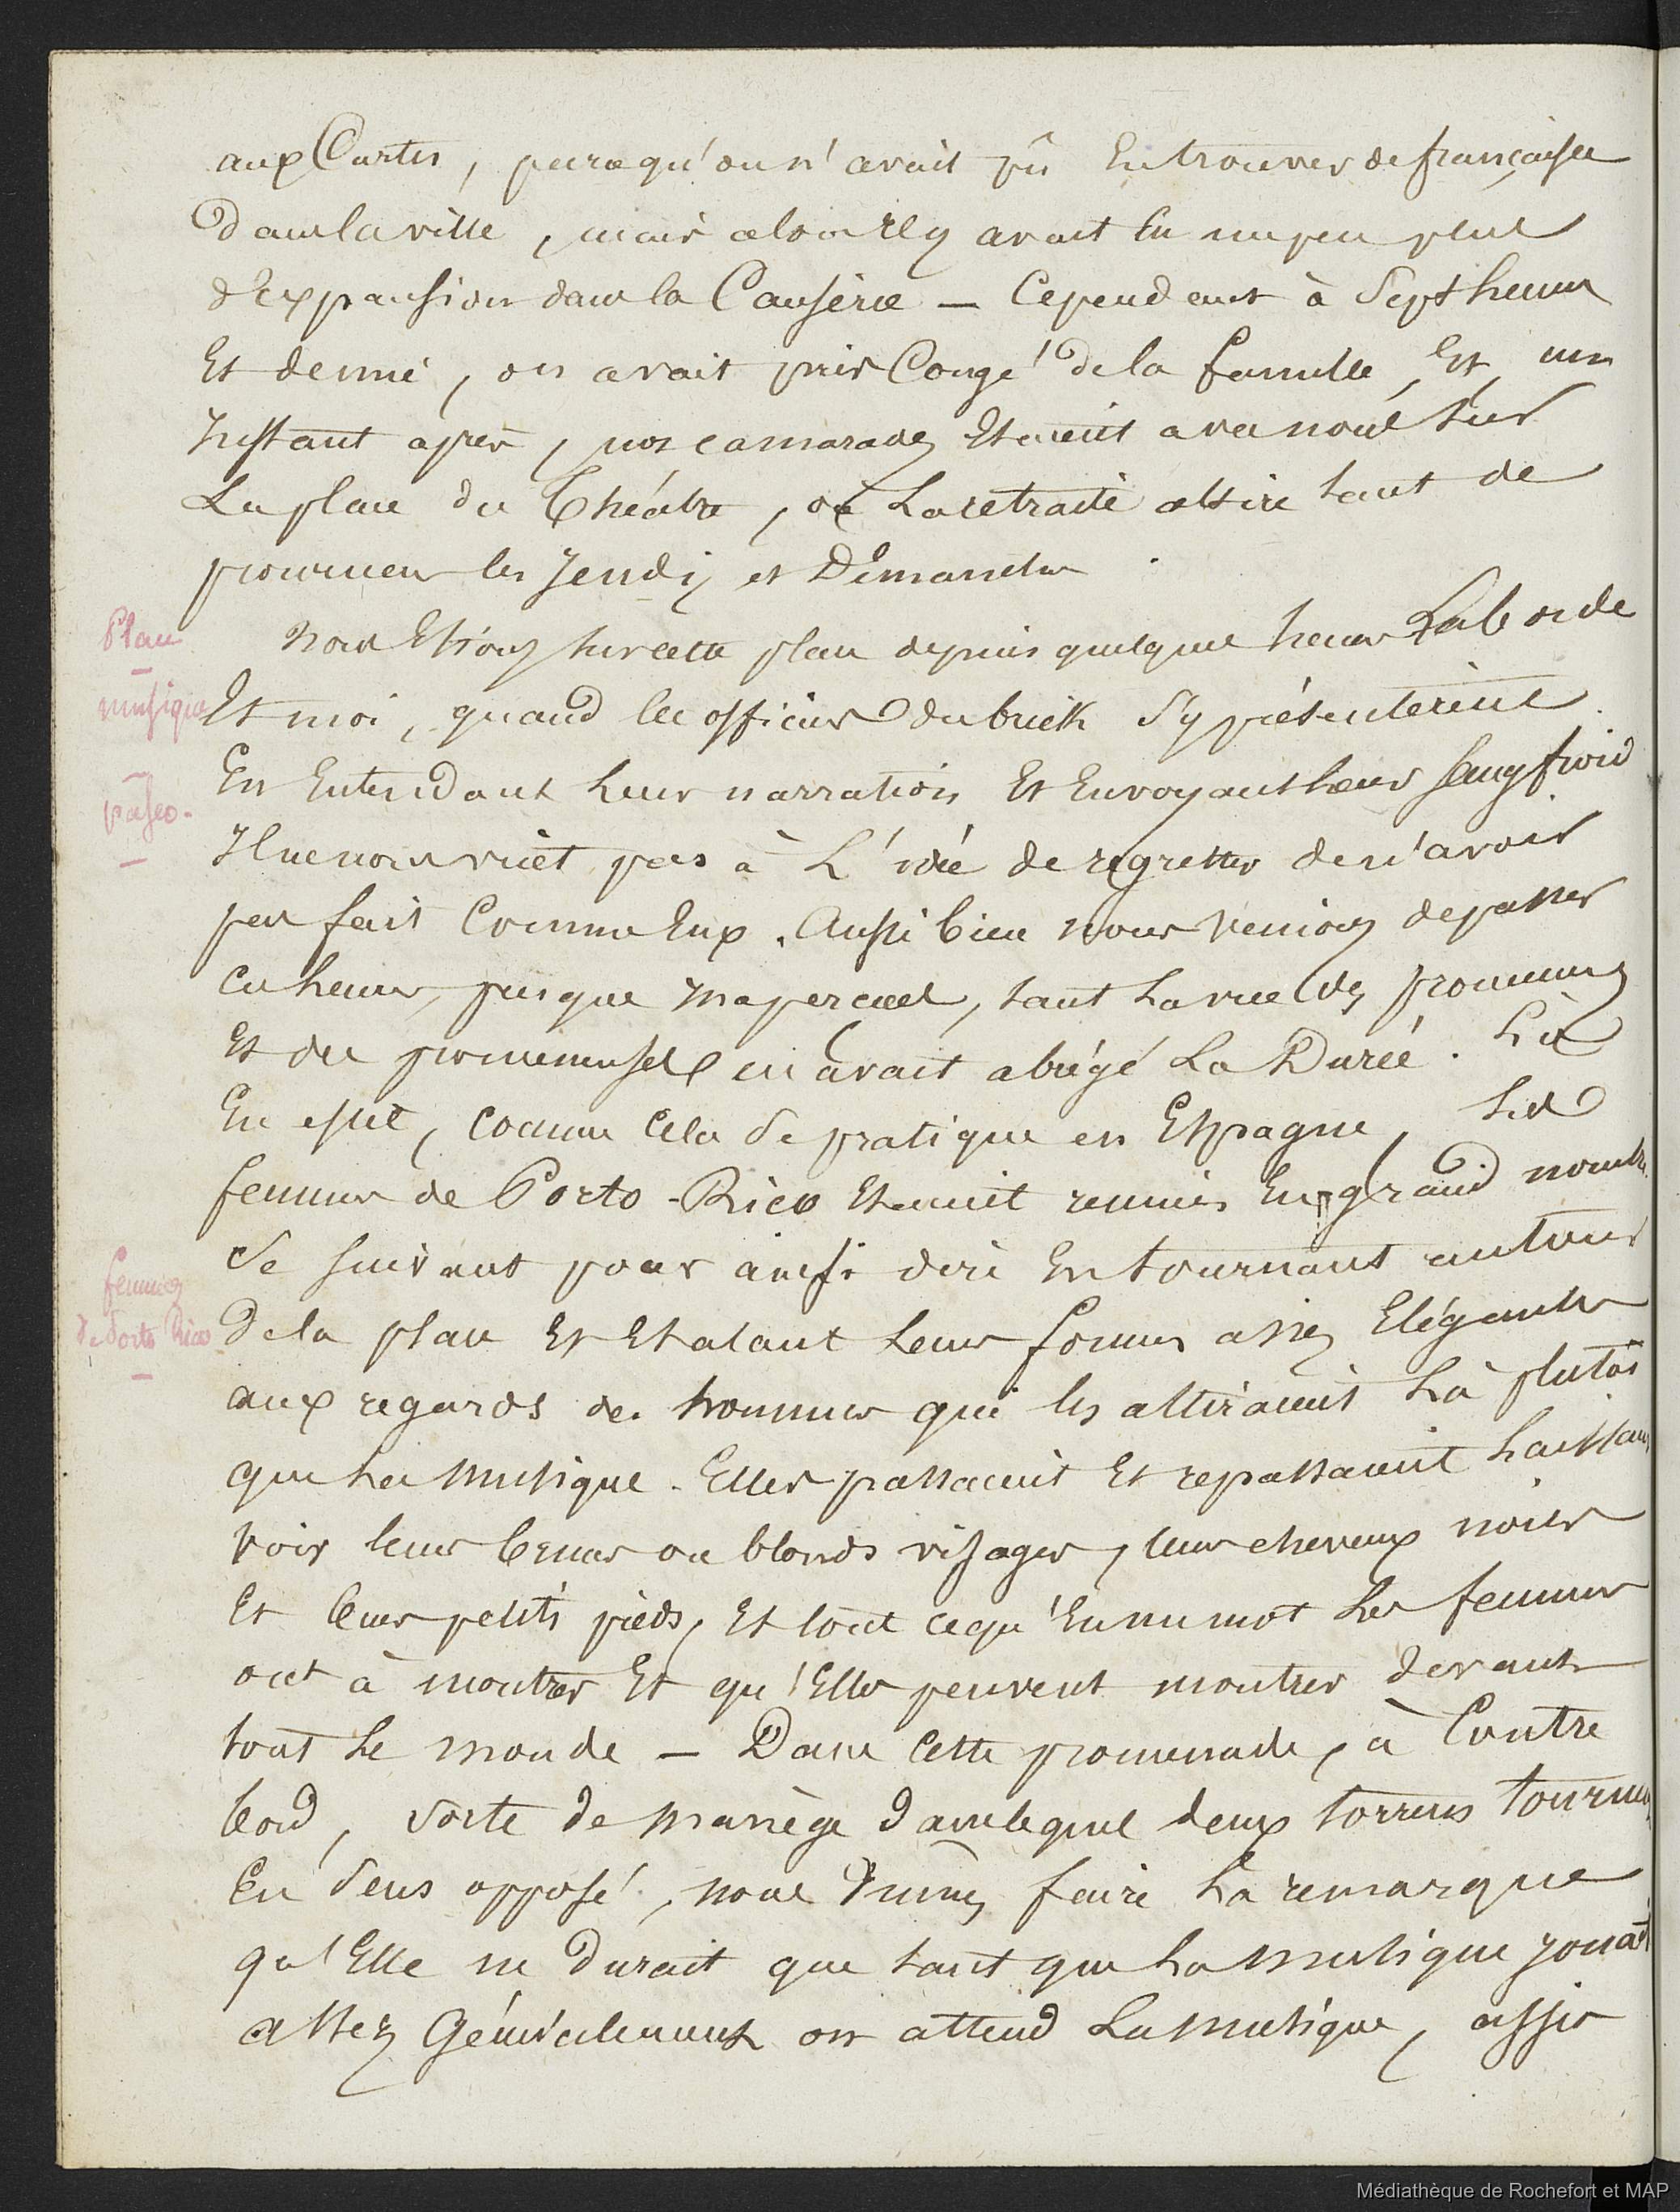 aux Cartes, parcequ'on n'avait pû En trouver de françaises
Dans la ville, mais alors Il y avait Eu un peu plus
d'Expansion dans la Causerie — Cependant à Sept heures
Et demie, on avait pris Congé de la famille, Et, un
Instant après, nos camarades Etaient avec nous sur
La place du Théâtre, où La retraite attire tant de
promeneurs les Jeudis et Dimanches.
Place
—
musique
—
paseo.
—
Nous Etions sur cette place depuis quelques heures Laborde
Et moi, quand les officiers du brick s'y présentèrent.
En Entendant leur narration Et En voyant leur sang froid
Il ne nous vint pas à L'idée de regretter de n'avoir
pas fait Comme Eux. Aussi bien nous venions de passer
ces heures, presque inaperçues, tant La vue des promeneurs
Et des promeneuses en avait abrégé La Durée. Là
En effet, comme Cela se pratique en Espagne, Les
femmes de Porto-Rico Etaient réunies En grand nombre
femmes
de Porto Rico
—
Se suivant pour ainsi dire En tournant autour
De la place Et Etalant Leurs formes assez Elégantes
aux regards des hommes qui les attiraient Là plutôt
que La Musique. Elles passaient Et repassaient Laissant
voir leurs bruns ou blonds visages, leurs cheveux noirs
Et leurs petits pieds, Et tout ce qu'En un mot Les femmes
ont à montrer Et qu'Elles peuvent montrer devant
tout Le monde — Dans Cette promenade, à Contre
bord, sorte de Manège dans lequel deux torrens tournent
En sens opposé, nous pûmes faire La remarque
qu'Elle ne Durait que tant que La Musique jouait
assez Généralement on attend La Musique, assis
Médiathèque de Rochefort et MAP